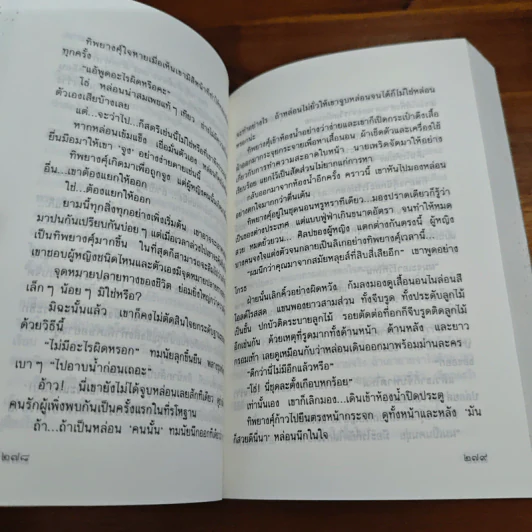 ทิพยางคุ์ใจหายเมื่อเห็นเขามีสีหน้า
ทุกครั้ง
"แอ้พูดอะไรผิดหรือคะ"
ใช่ หล่อนน่าสมเพชแท้ๆ เทียว
ตัวเองเสียบ้างเลย
แต่...จะว่าไป...ก็สตรีเช่นนี้ไม่ใช่หรือ
หากหล่อนเข้มแข็ง เชื่อมั่นตัวเอง
ยื่นมือมาให้เขา 'จูง' อย่างง่ายดายเช่นนี้
ทิพยางคุ์เกิดมาเพื่อถูกจูง แต่ผู้หญิงคนนั้น
อื่น...เขาต้องแยกให้ออก
ใช่...ต้องแยกให้ออก
ยามนี้ทุกสิ่งทุกอย่างเพิ่งเริ่มต้น
มาปนกันเปรียบกันบ่อยๆ แต่เมื่อเวลาล่วงไป
เป็นทิพยางคุ์มากขึ้น ในที่สุดก็สามารถจะ
เขาชอบผู้หญิงชนิดไหนและตัวเองมีจุดหมาย
จุดหมายปลายทางของชีวิต ย่อมยิ่งใหญ่กว่า
เล็กๆ น้อยๆ มิใช่หรือ?
มิฉะนั้นแล้ว เขาก็คงไม่ตัดสินใจยกระดับฐานะ
ด้วยวิธีนี้
"ไม่มีอะไรผิดหรอก" ทมนัยลุกขึ้นยืน
เบาๆ "ไปอาบน้ำก่อนเถอะ"
อ้าว! นี่เขายังไม่ได้จูบหล่อนเลยสักทีเดียว
คนรักผู้เพิ่งพบกันเป็นครั้งแรกในที่รโหฐาน
ถ้า...ถ้าเป็นหล่อน 'คนนั้น' ทมนัยนึกออก
๒๗๘
ถ้าหล่อนไม่ยั่วให้เขาจูบหล่อนจนได้ก็ไม่ใช่หล่อน
ทิพยางคุ์เข้าห้องน้ำอย่างว่าง่ายและเขาก็เปิดกระเป๋าดึงเสื้อ
ผ้าออกมากระจุยกระจายเพื่อหาเสื้อนอน ผ้าเช็ดตัวและเครื่องใช้
เกี่ยวกับการทำความสะอาดใบหน้า นายเพริดจัดมาให้อย่าง
เรียบร้อย แยกไว้เป็นสัดส่วนไม่ยากแก่การหา
กลับออกมาจากห้องน้ำอีกครั้ง คราวนี้ เขาหันไปมองหล่อน
อย่างตกใจมากกว่าตื่นเต้น
ทิพยางคุ์อยู่ในชุดนอนหรูหราทีเดียว...มองปราดเดียวก็รู้ว่า
เป็นของต่างประเทศ แต่แบบฟู่ฟ่าเกินขนาดอัตรา จนทำให้หมด
สวย หมดยั่วยวน... ศิลปของผู้หญิง แตกต่างกันตรงนี้ ผู้หญิง
บางคนจงใจแต่งตัวจนกลายเป็นลิเกอย่างทิพยางคุ์เวลานี้...
"ผมนึกว่าคุณมาจากสมัยหลุยส์ที่สิบสี่เสียอีก" เขาพูดอย่าง
โกรธ
ฝ่ายนั้นเลิกคิ้วอย่างผิดหวัง ก้มลงมองดูเสื้อนอนไนล่อนสี
ไวโอเล็ตใสสดสด แขนพองยาวสามส่วน ทั้งจีบรูด ทั้งประดับลูกไม้
เป็นชั้น ปกบัวติดระบายลูกไม้ รอยตัดต่อที่อกก็จีบรูดติดลูกไม้
อีกเช่นกัน ด้วยเหตุที่รูดมากทั้งด้านหน้า ด้านหลัง และยาว
กรอมเท้า เลยดูเหมือนกับว่าหล่อนเดินออกมาพร้อมม่านละคร
"ดีกว่านี้ไม่มีอีกแล้วหรือ"
"โธ่! นี่ชุดละตั้งเกือบหกร้อย"
เท่านั้นเอง เขาก็เลิกมอง...เดินเข้าห้องน้ำปิดประตู
ทิพยางคุ์ก้าวไปยืนตรงหน้ากระจก ดูทั้งหน้าและหลัง 'มัน
ก็สวยดีนี่นา' หล่อนนึกในใจ
๒๗๙